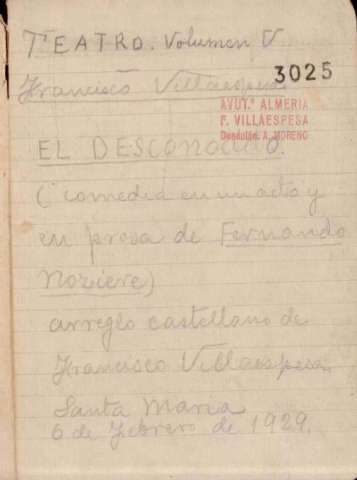 TEATRO. Volumen V
Francisco Villaespesa
3025
AYUT.º ALMERIA
F. VILLAESPESA
Donación, A. MORENO
EL DESCONOCIDO.
(comedia en un acto y
en prosa de Fernando
Noziere)
arreglo castellano de
Francisco Villaespesa.
Santa Maria
6 de Febrero de 1929.